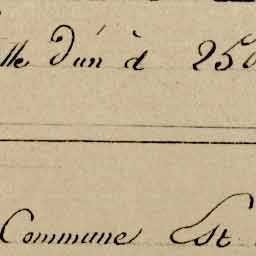 lle d'un à 250
Commune Est